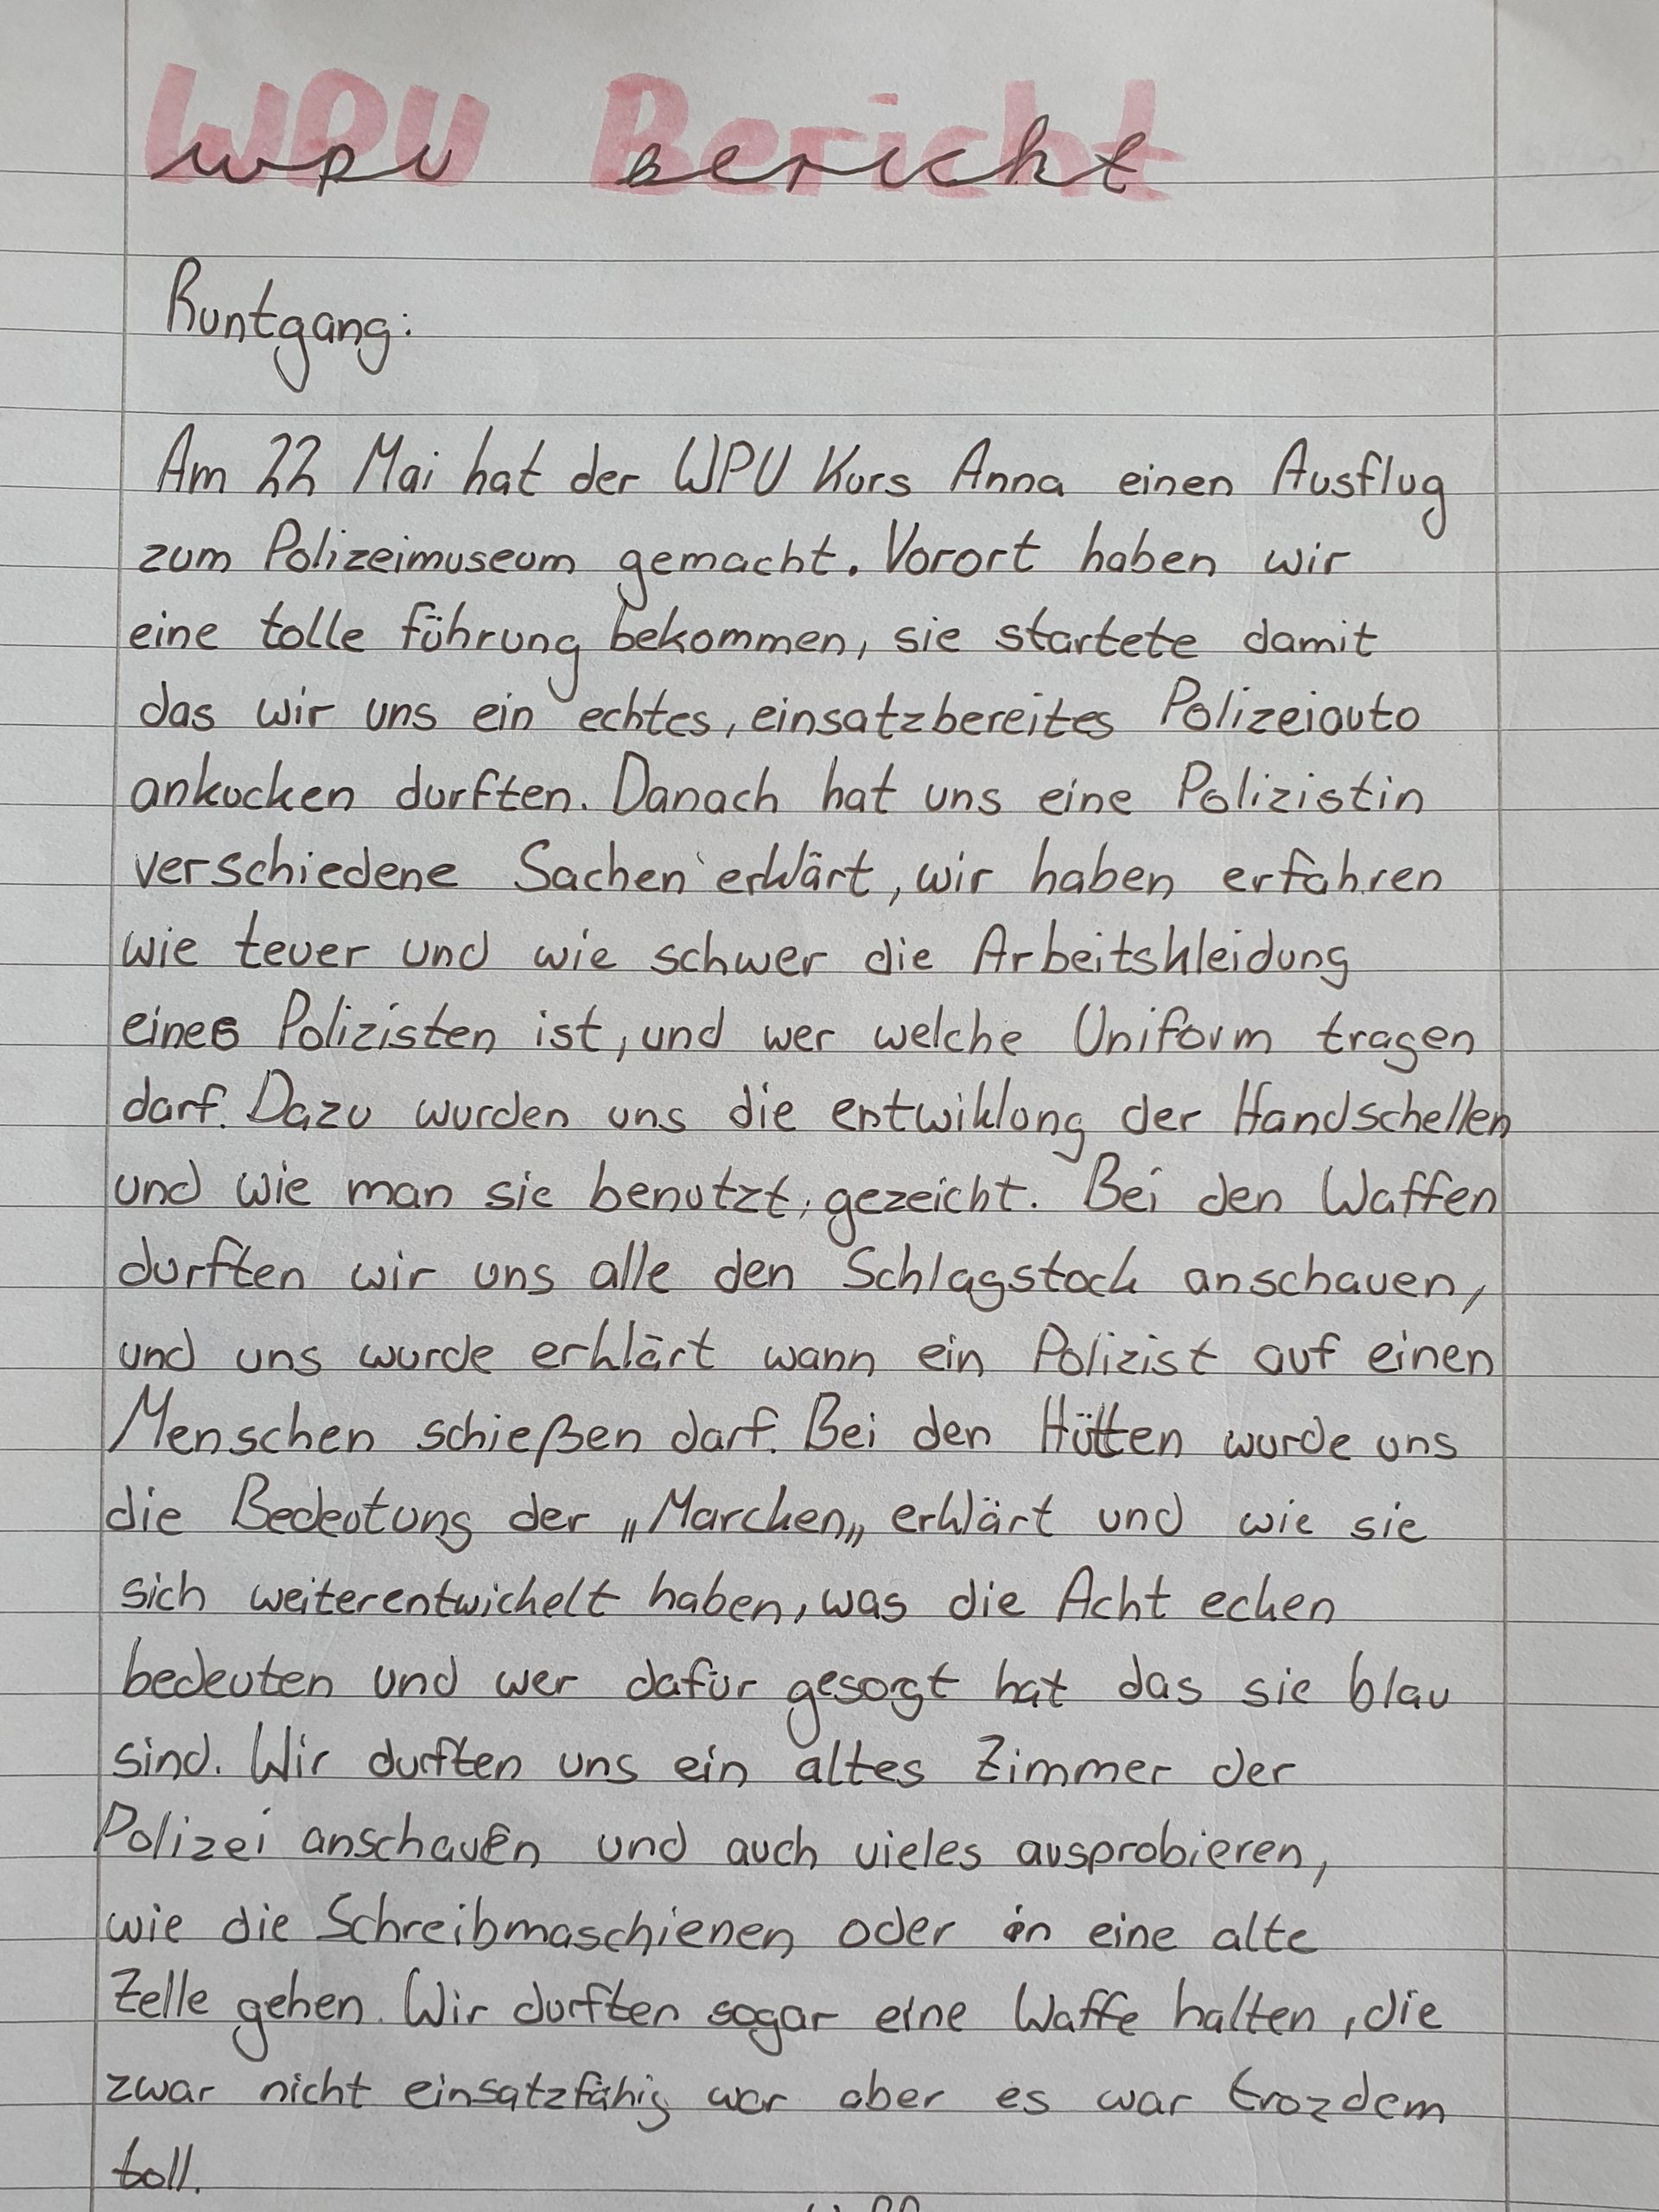 WPU Bericht
Runtgang:
Am 22 Mai hat der WPU Kurs Anna einen Ausflug
zum Polizeimuseum gemacht. Vorort haben wir
eine tolle führung bekommen, sie startete damit
das wir uns ein echtes, einsatzbereites Polizeiauto
ankucken durften. Danach hat uns eine Polizistin
verschiedene Sachen erklärt, wir haben erfahren
wie teuer und wie schwer die Arbeitskleidung
eines Polizisten ist, und wer welche Uniform tragen
darf. Dazu wurden uns die entwiklung der Handschellen
und wie man sie benutzt, gezeicht. Bei den Waffen
durften wir uns alle den Schlagstock anschauen,
und uns wurde erklärt wann ein Polizist auf einen
Menschen schießen darf. Bei den Hütten wurde uns
die Bedeutung der „Marcken„ erklärt und wie sie
sich weiterentwickelt haben, was die Acht ecken
bedeuten und wer dafür gesorgt hat das sie blau
sind. Wir durften uns ein altes Zimmer der
Polizei anschauen und auch vieles ausprobieren,
wie die Schreibmaschienen oder in eine alte
Zelle gehen. Wir durften sogar eine Waffe halten, die
zwar nicht einsatzfähig war aber es war trozdem
toll.